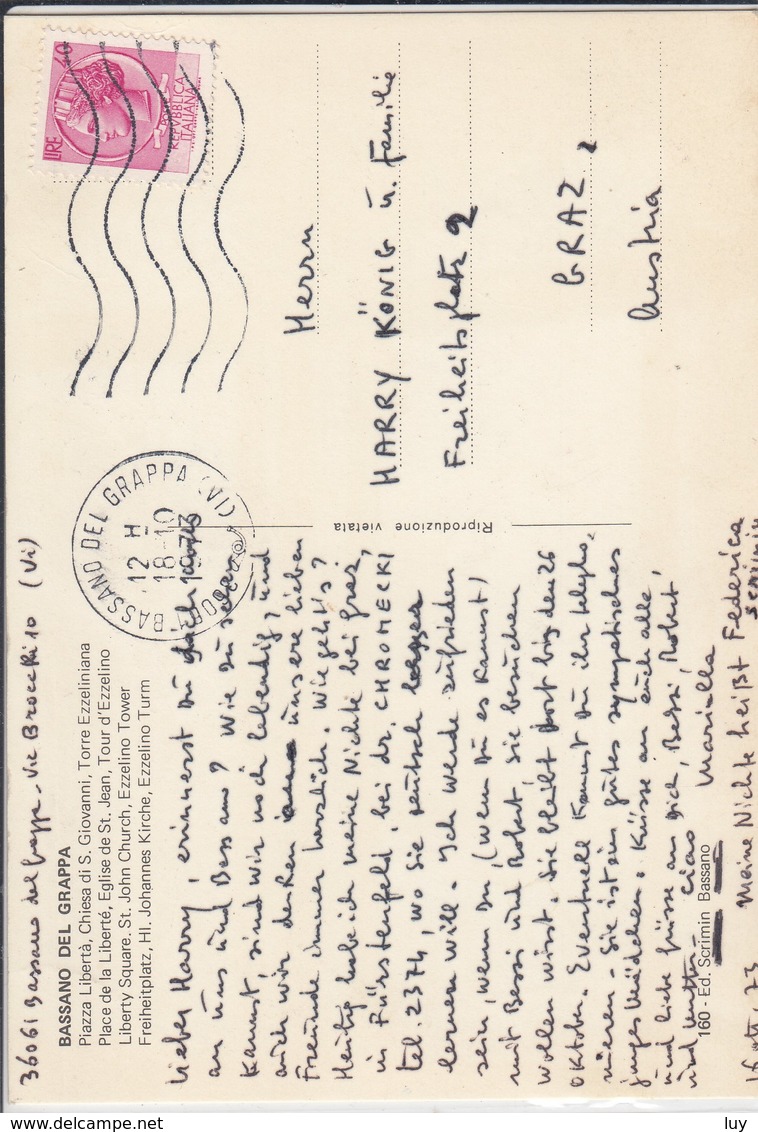 36061 Bassano del Grappa - Via Brocchi 10 (Vi)
BASSANO DEL GRAPPA
Piazza Libertà, Chiesa di S. Giovanni, Torre Ezzeliniana
Place de la Liberté, Eglise de St. Jean, Tour d'Ezzelino
Liberty Square. St. John Church, Ezzelino Tower
Freiheitplatz, Hl. Johannes Kirche, Ezzelino Turm
Lieber Harry, erinnerst Du Dich
an uns und Bassano? Wie Du sehen
kannst, sind wir noch lebendig, und
auch wir denken unsere lieben
Freunde immer herzlich. Wie geht's?
Heutig habe ich meine Nichte bei Graz,
in Fürstenfeld, bei dr. CHROMECKI
tel. 2374, wo Sie deutsch
lernen will. Ich werde zufrieden
sein, wenn Du, (wenn Du es kannst)
mit Bessi und Robert, Sie besuchen
wollen wirst. Sie bleibt dort bis den 26
Oktober. Eventuell kannst Du ihr telepho-
nieren - Sie ist ein gutes sympatisches
junges Mädchen. Küsse an euch alle,
und liebe Grüsse an Dich, Bessi, Robert,
und Mutter. Ciao Mariella
160 - Ed. Scrimin Bassano
Meine Nichte heißt Federica
Scrimin
73
Riproduzione vietata
36061 BASSANO DEL GRAPPA (VI)
12 H
18-10
1973
LIRE 40
POSTE
REPVBBLICA
ITALIANA
Herrn
HARRY KÖNIG u. Familie
Freiheitsplatz 2
GRAZ,
Austria
luy